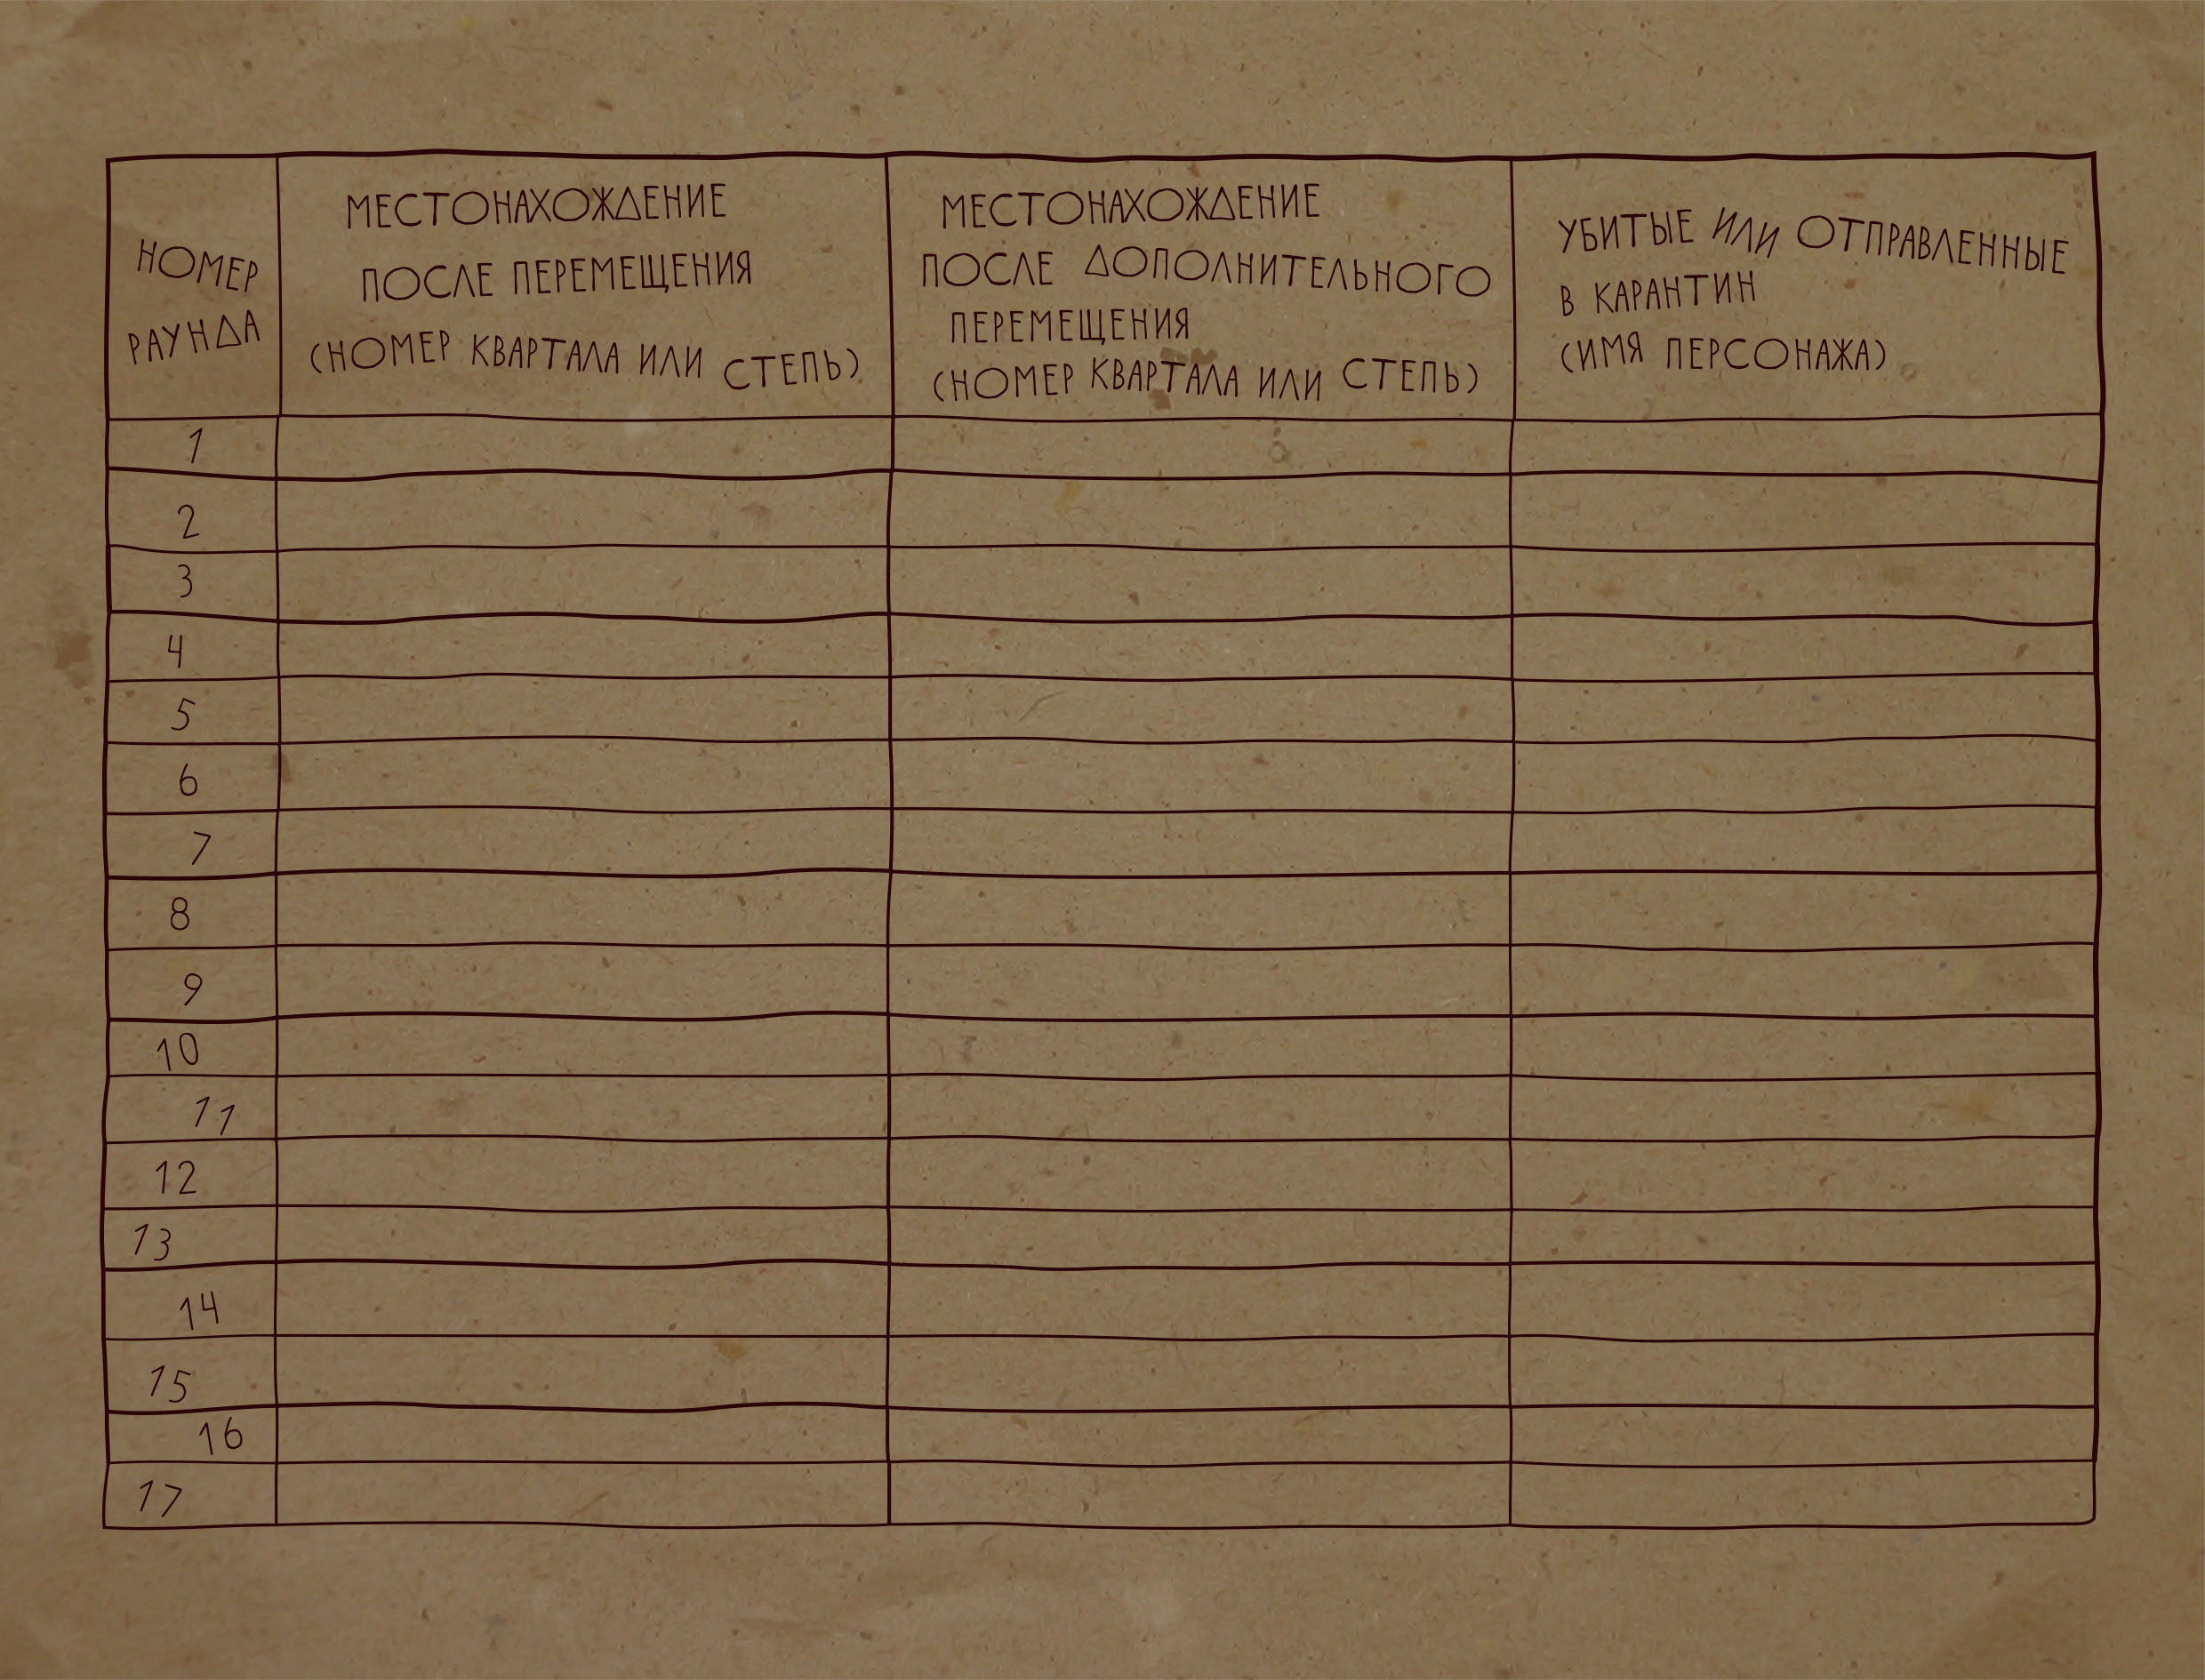 НОМЕР
РАУНДА
МЕСТОНАХОЖДЕНИЕ
ПОСЛЕ ПЕРЕМЕЩЕНИЯ
(НОМЕР КВАРТАЛА ИЛИ СТЕПЬ)
МЕСТОНАХОЖДЕНИЕ
ПОСЛЕ ДОПОЛНИТЕЛЬНОГО
ПЕРЕМЕЩЕНИЯ
(НОМЕР КВАРТАЛА ИЛИ СТЕПЬ)
УБИТЫЕ ИЛИ ОТПРАВЛЕННЫЕ
В КАРАНТИН
(ИМЯ ПЕРСОНАЖА)
1
2
3
4
5
6
7
8
9
10
11
12
13
14
15
16
17